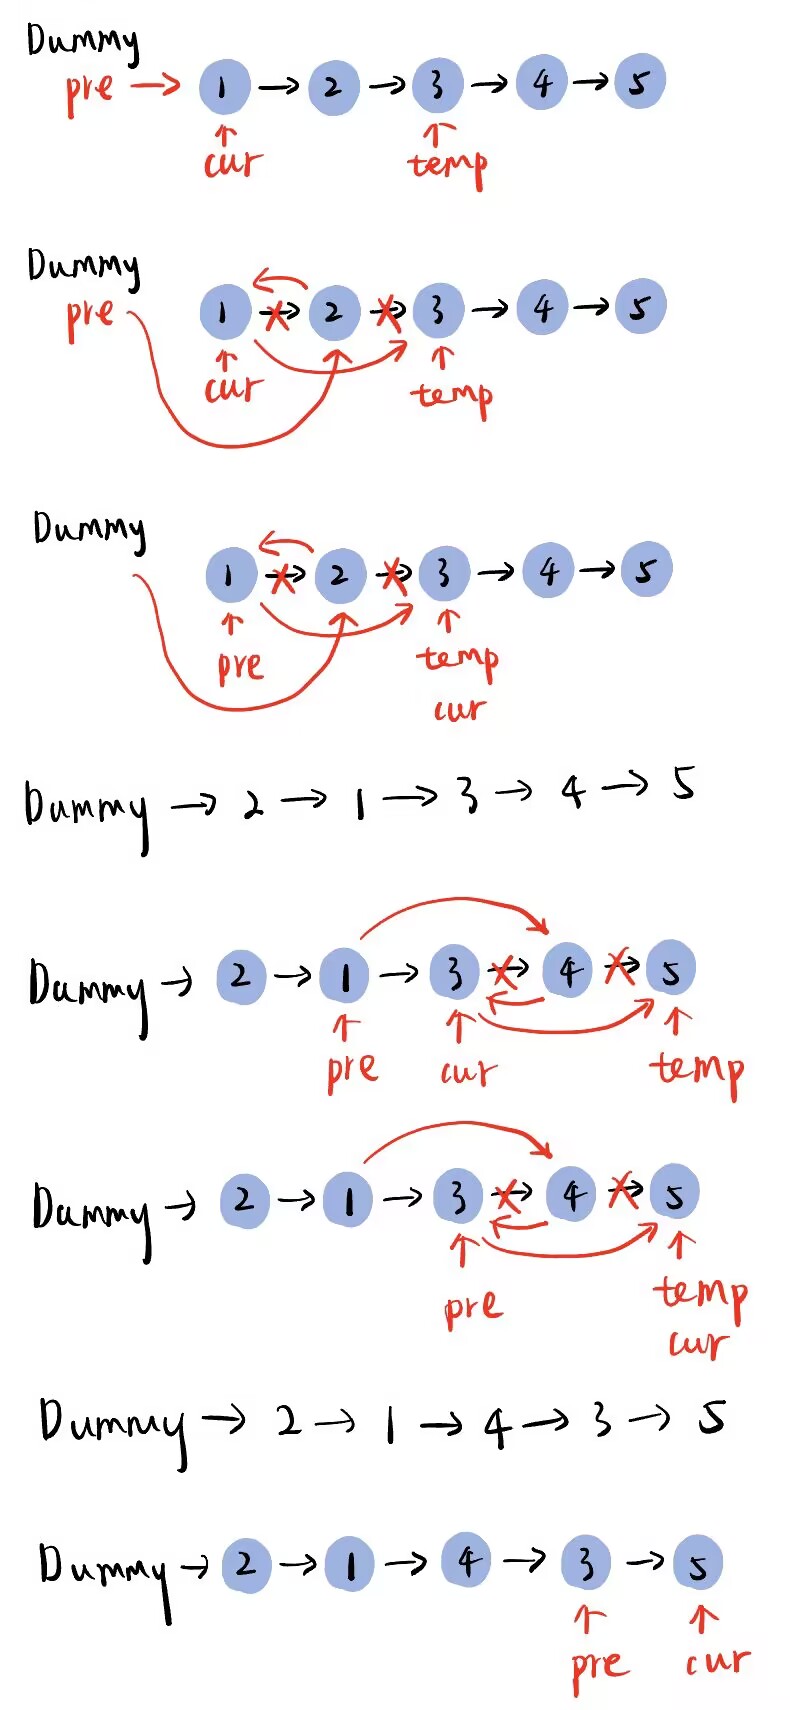 Dummy
pre → 1 → 2 → 3 → 4 → 5
cur temp
Dummy
pre 1 → 2 → 3 → 4 → 5
cur temp
Dummy
1 → 2 → 3 → 4 → 5
pre temp
cur
Dummy → 2 → 1 → 3 → 4 → 5
Dummy → 2 → 1 → 3 → 4 → 5
pre cur temp
Dummy → 2 → 1 → 3 → 4 → 5
pre temp
cur
Dummy → 2 → 1 → 4 → 3 → 5
Dummy → 2 → 1 → 4 → 3 → 5
pre cur